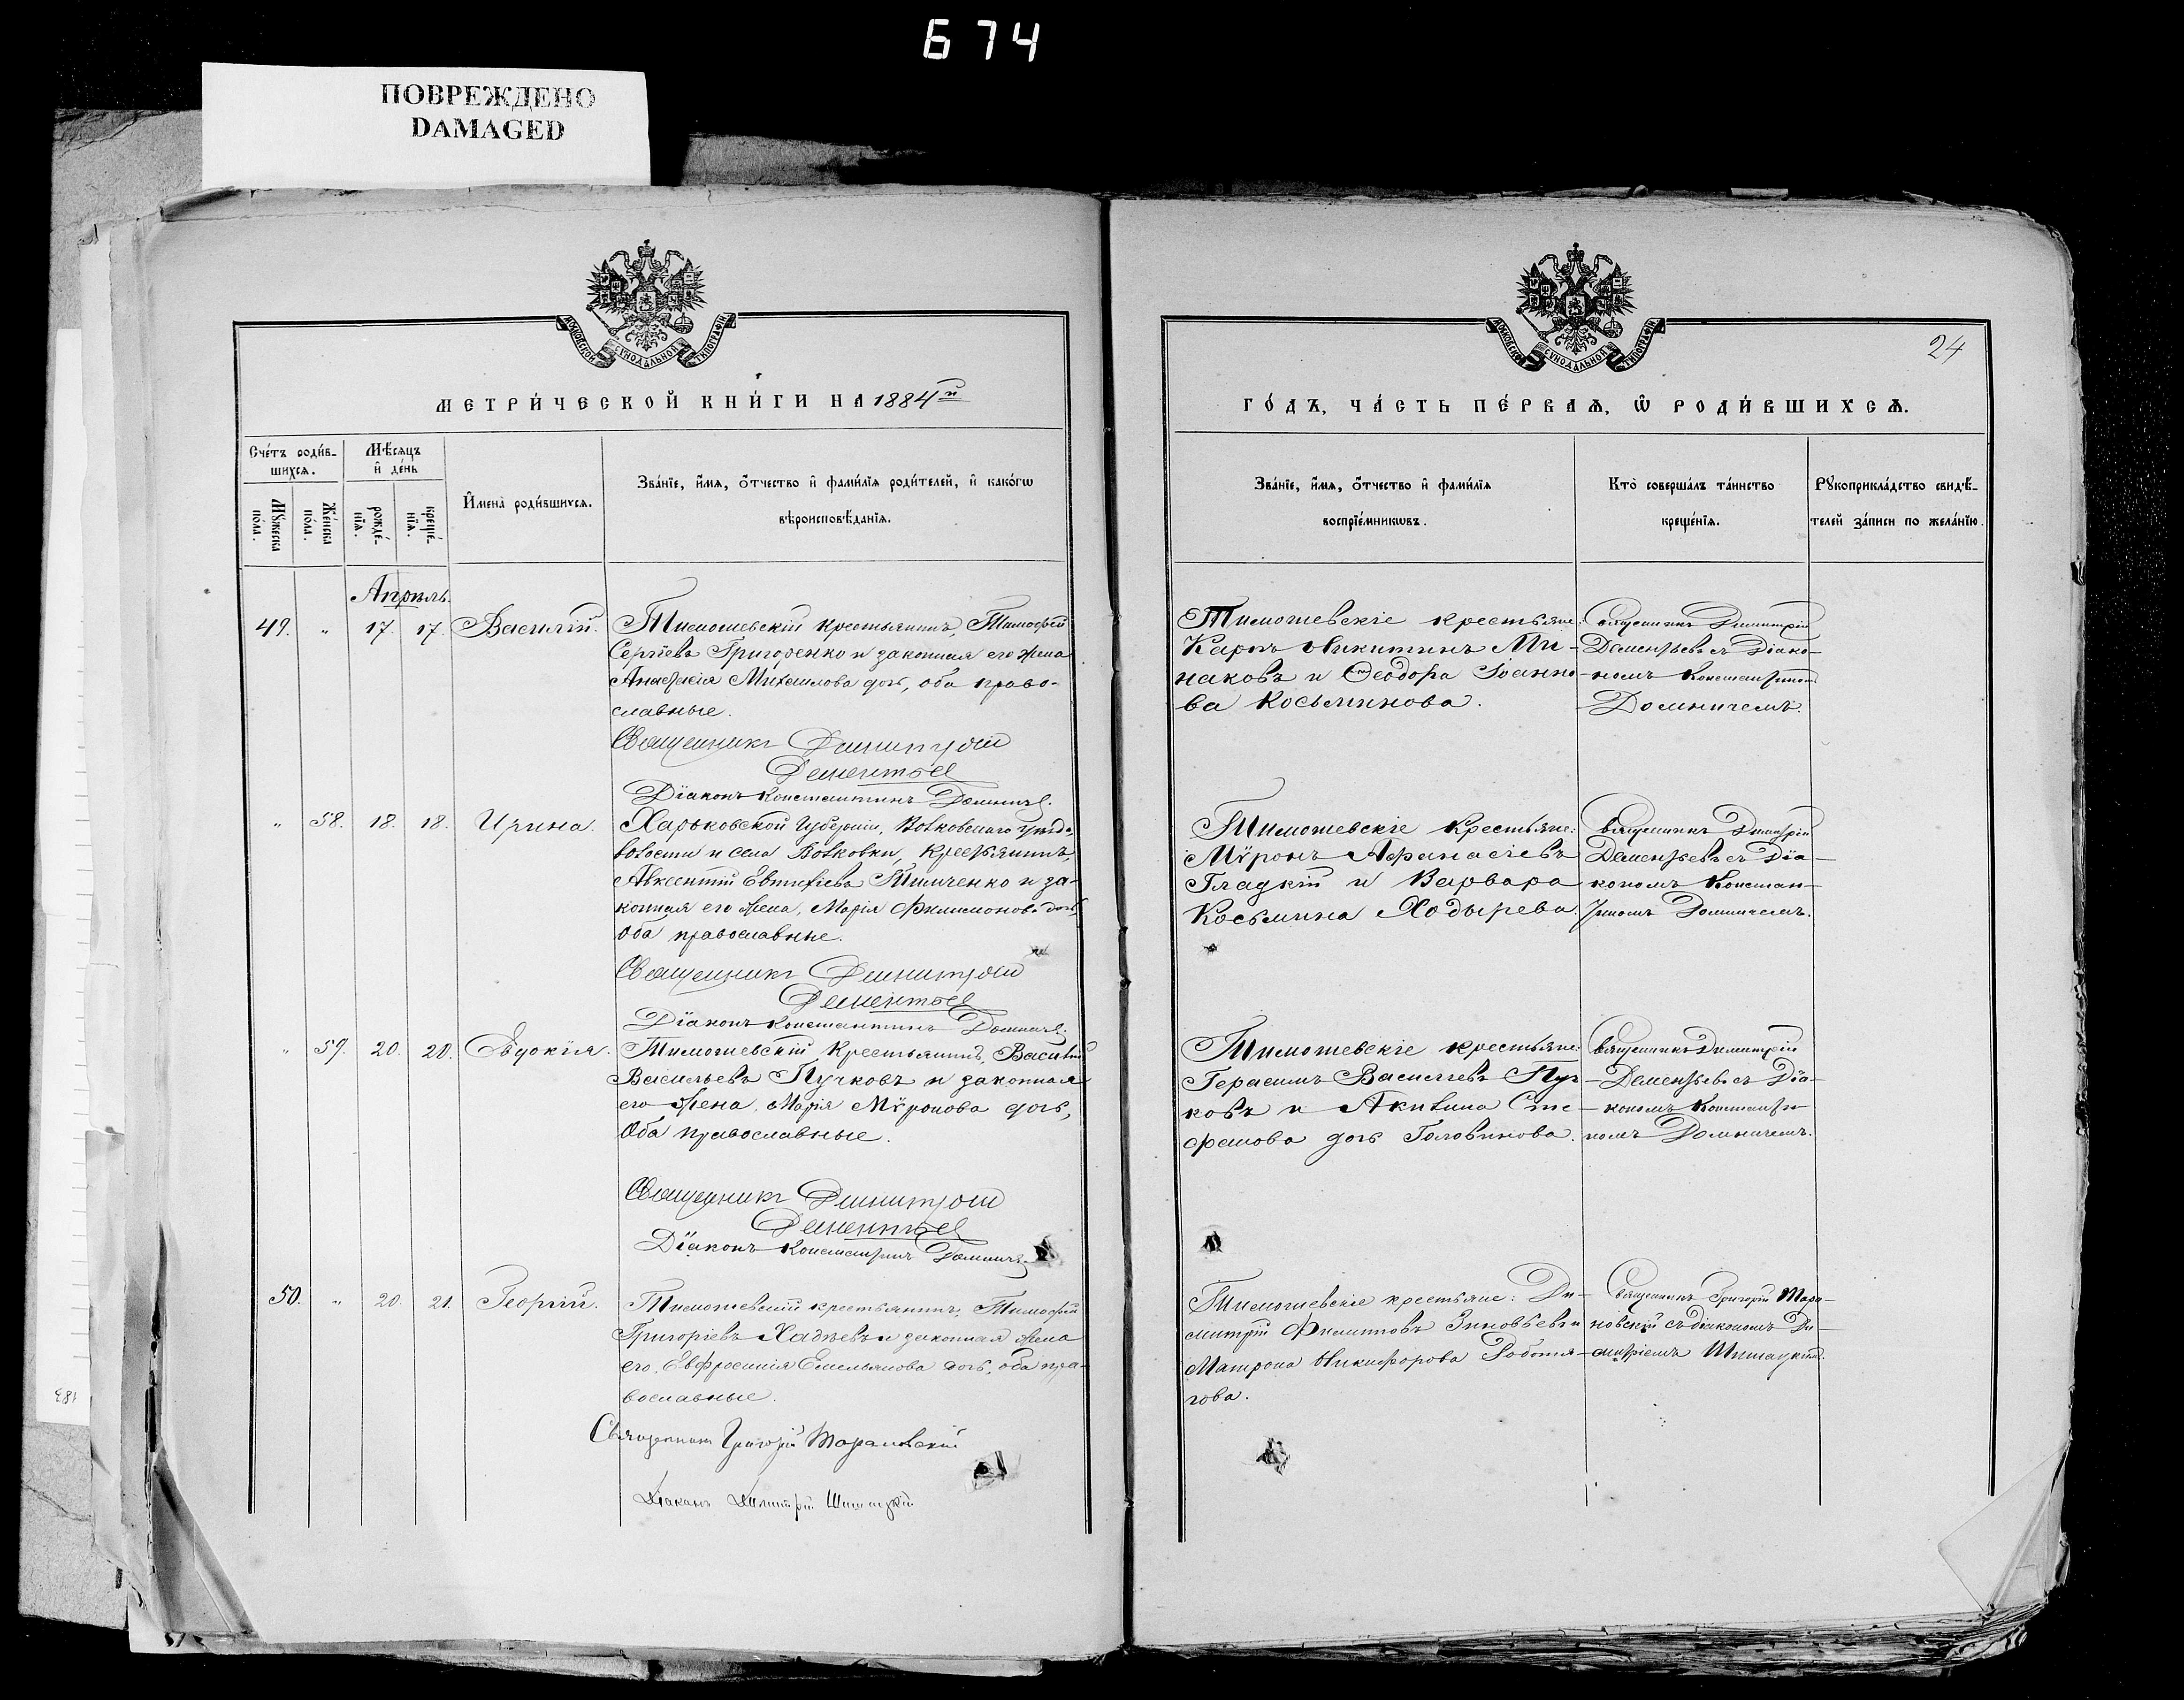 674
ПОВРЕЖДЕНО
DAMAGED
МОСКОВСКОЙ СѴНОДАЛЬНОЙ ТИПОГРАФІИ
МЕТРИ́ЧЕСКОЙ КНИ́ГИ НА 1884й
Сче́тъ роди́в-
шихсѧ.
Мѣ́сѧцъ
и҆ де́нь
Мꙋ́жеска
по́ла.
Же́нска
по́ла.
рожде́-
нїѧ.
креще́-
нїѧ.
И҆мена̀ роди́вшихсѧ.
Зва́нїе, и҆́мѧ, ѻ҆́тчество и҆ фами́лїѧ роди́телей, и҆ како́гѡ
вѣроисповѣ́данїѧ.
Апрѣль.
49. „ 17. 17. Василій.
Тимошевскій крестьянинъ, Тимофей
Сергіевъ Григоренко и законная его жена
Анастасія Михаилова дочь, оба право-
славные.
Священникъ Димитрій
Дементьев
Діаконъ Константинъ Домничъ.
„ 58. 18. 18. Ирина.
Харьковской Губерніи, Волковскаго уѣзда,
волости и села Волковки, Крестьянинъ,
Авксентій Евтихіевъ Тимченко и за-
конная его жена, Марія Филимонова дочь,
Оба православные.
Священникъ Димитрій
Дементьев
Діаконъ Константинъ Домничъ.
„ 59. 20. 20. Евдокія.
Тимошевскій Крестьянинъ, Василій
Васильевъ Пучковъ и законная
его жена, Марія Мѵронова дочь,
Оба православные.
Священникъ Димитрій
Дементьев
Діаконъ Константинъ Домничъ
50. „ 20. 21. Георгій.
Тимошевскій крестьянинъ, Тимофей
Григоріевъ Хаджевъ и законная жена
его, Евфросинія Емельянова дочь, оба пра-
вославные.
Священникъ Григорій Тарановскій
Діаконъ Димитрій Шишацкій
МОСКОВСКОЙ СѴНОДАЛЬНОЙ ТИПОГРАФІИ
24
ГО́ДЪ, ЧА́СТЬ ПЕ́РВАѦ, Ѽ РОДИ́ВШИХСѦ.
Зва́нїе, и҆́мѧ, ѻ҆́тчество и҆ фами́лїѧ
воспрїе́мникѡвъ.
Кто̀ соверша́лъ та́инство
креще́нїѧ.
Рꙋкоприкла́дство свидѣ́-
телей за́писи по жела́нїю.
Тимошевскіе крестьяне:
Карпъ Никитинъ Ми-
наковъ и Ѳеодора Іоанно-
ва Косьминова.
Священникъ Димитрій
Дементьевъ съ Діако-
номъ Константиномъ
Домничемъ.
Тимошевскіе Крестьяне:
Мѵронъ Афанасіевъ
Гладкій и Варвара
Косьмина Ходырева.
Священникъ Димитрій
Дементьевъ съ Діа-
кономъ Констан-
тиномъ Домничемъ.
Тимошевскіе крестьяне:
Герасимъ Васильевъ Пуч-
ковъ и Акилина Сте-
фанова дочь Головинова.
Священникъ Димитрій
Дементьевъ съ Діа-
кономъ Константи-
номъ Домничемъ.
Тимошевскіе крестьяне: Ди-
митрій Филипповъ Зиновьевъ и
Матрона Никифорова Работя-
гова.
Священникъ Григорій Тара-
новскій съ діакономъ Ди-
митріемъ Шишацкимъ.
183